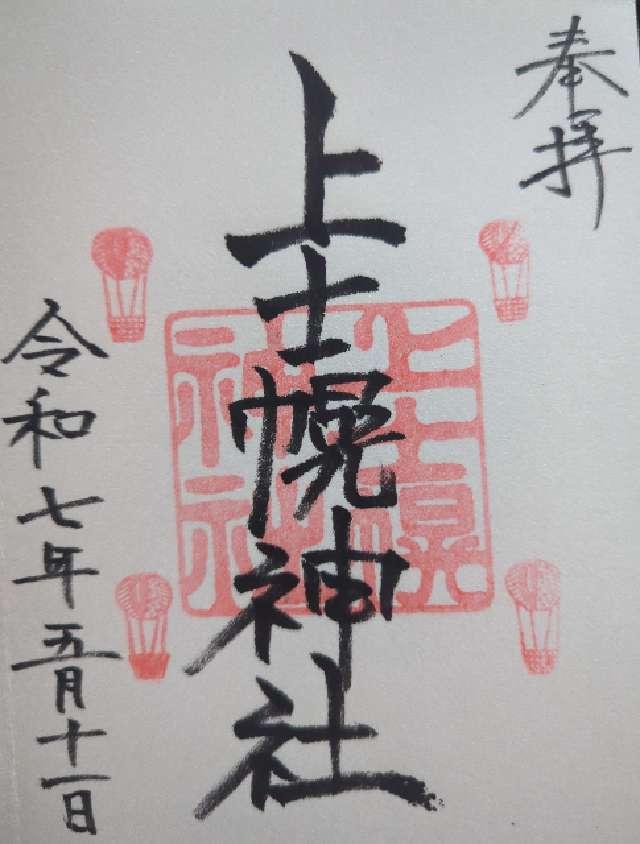 奉拝
上士幌神社
上士幌神社
令和七年五月十一日